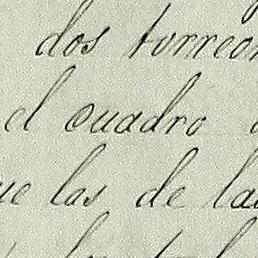 dos torreon
el cuadro
ue las de las